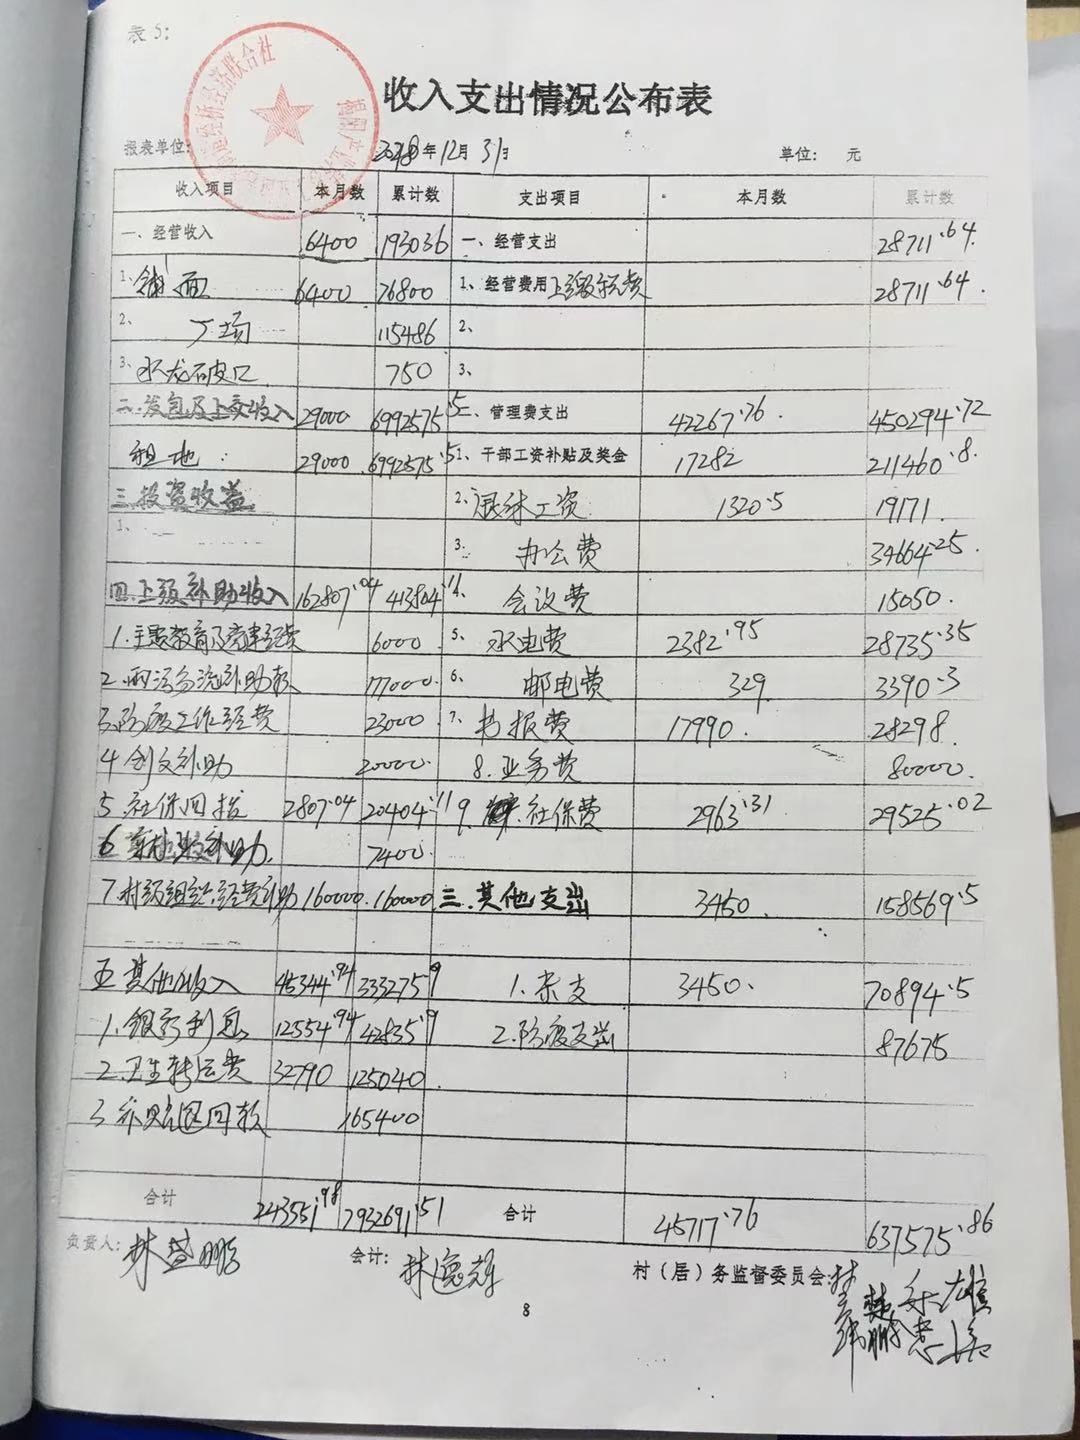 表5:
收入支出情况公布表
报表单位: 年12月31日 单位: 元
收入项目 本月数 累计数 支出项目 本月数 累计数
一、经营收入 6400 193036 一、经营支出 28711.64
1、铺面 6400 76800 1、经营费用 28711.64
2、厂场 115486 2、
3、水龙破口 750 3、
二.发包及上交收入 29000 6992575.5 二、管理费支出 42267.76 450294.72
租地 29000 6992575.5 1、干部工资补贴及奖金 17282 211460.8
三.投资收益 2.退休工资 1320.5 19171
1、 3. 办公费 34664.25
四.上级补助收入 162807.04 413804.11 4. 会议费 15050
1.主题教育及党建经费 6000 5. 水电费 2382.95 28735.35
2.雨污分流补助款 177000 6. 邮电费 329 3390.3
3.防疫工作经费 23000 7. 书报费 17990 28298
4创文补助 20000 8.业务费 80000
5.社保回拨 2807.04 20404.11 9. 社保费 2963.31 29525.02
6 补助 7400
7.村级组织经费补助 160000 160000 三.其他支出 3450 158569.5
五其他收入 45344.94 333275.9 1.杂支 3450 70894.5
1.银行利息 12554.94 42835.9 2.防疫支出 87675
2.卫生转运费 32790 125040
3.补贴退回款 165400
合计 243551.98 7932691.51 合计 45717.76 637575.86
负责人: 林盛鹏 会计: 林逸彪 村（居）务监督委员会:
8